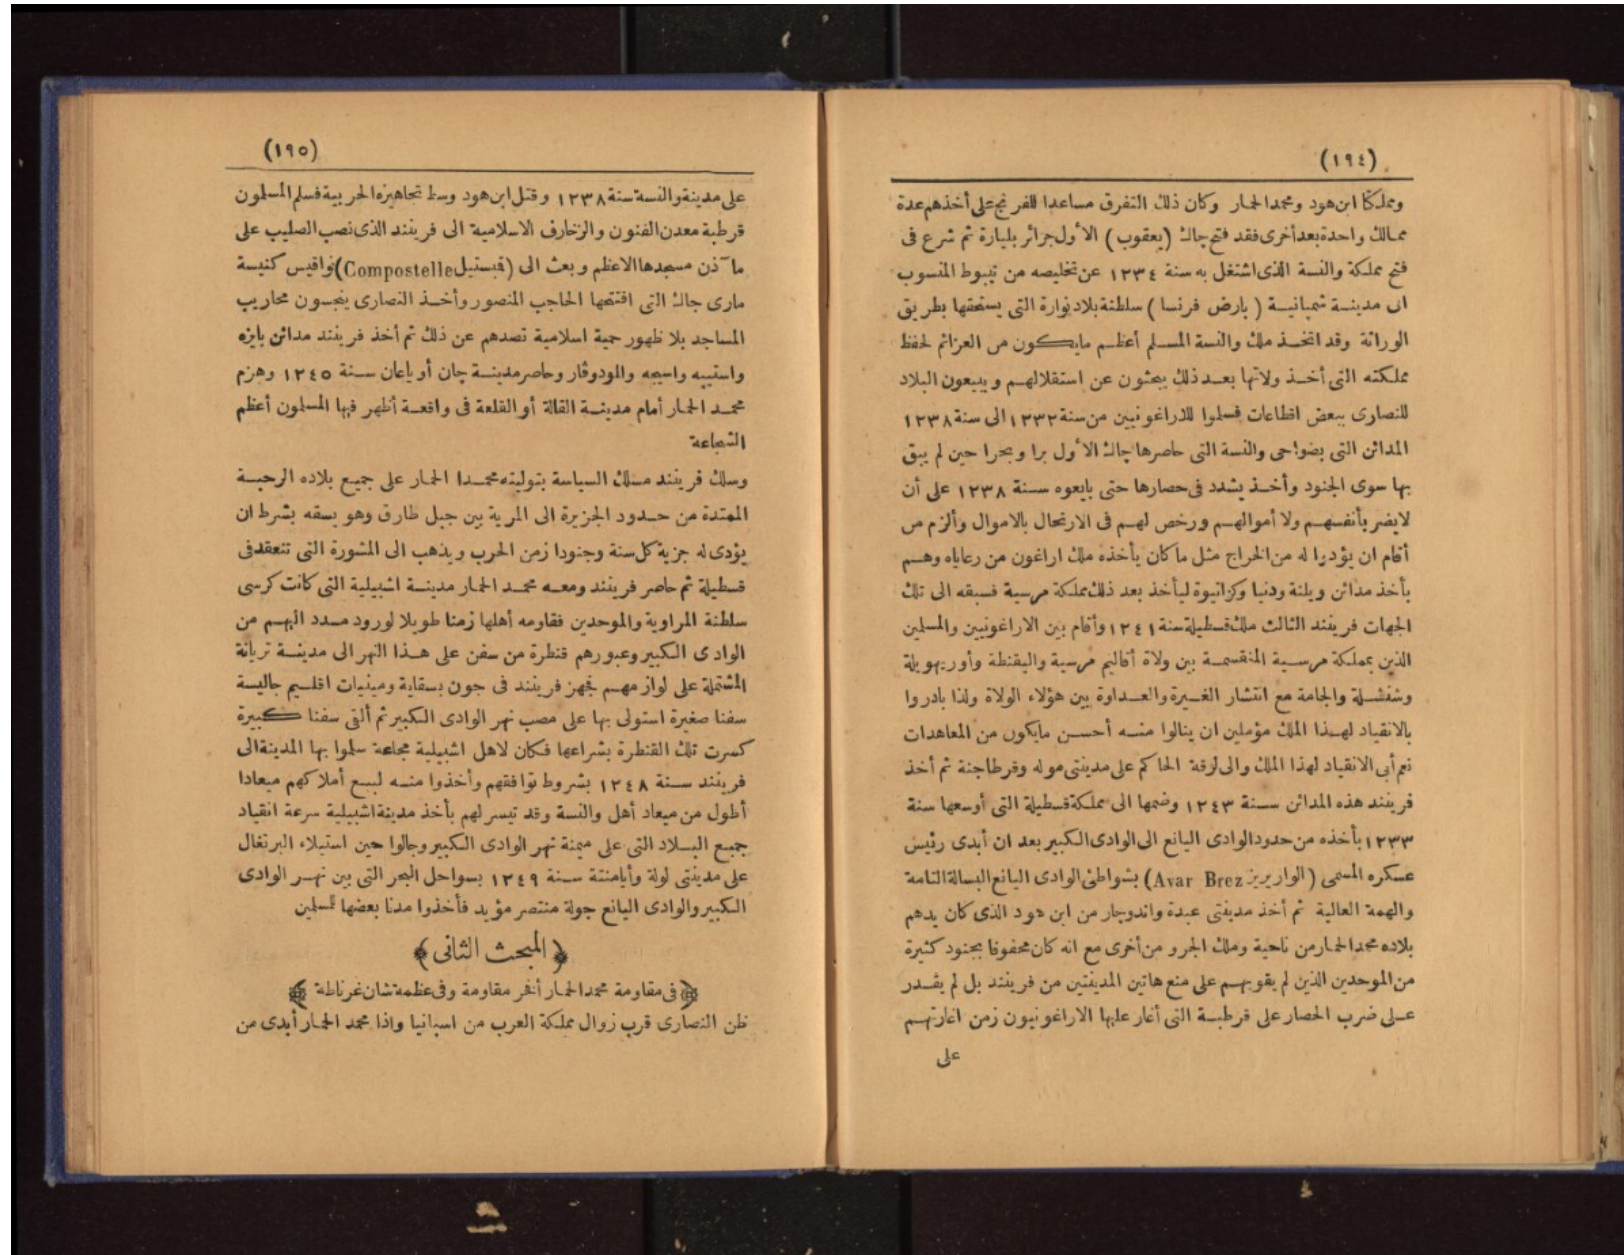 (١٩٤)
ومملكتا ابن هود ومحمد الحمار وكان ذلك التفرق مساعدا للفرنج على أخذهم عدة
ممالك واحدة بعد أخرى فقد فتح چاك (يعقوب) الأول جزائر بليارة ثم شرع فى
فتح مملكة والنسة الذى اشتغل به سنة ١٢٣٤ عن تخليصه من تيبوط المنسوب
الى مدينة شمبانية (بارض فرنسا) سلطنة بلاد نوارة التى يستحقها بطريق
الوراثة وقد اتخذ ملك والنسة المسلم أعظم مايكون من العزائم لحفظ
مملكته التى أخذ ولاتها بعد ذلك يبحثون عن استقلالهم ويبيعون البلاد
للنصارى ببعض اقطاعات فسلموا للاراغونيين من سنة ١٢٣٢ الى سنة ١٢٣٨
المدائن التى بضواحى والنسة التى حاصرها چاك الأول برا وبحرا حين لم يبق
بها سوى الجنود وأخذ يشدد فى حصارها حتى بايعوه سنة ١٢٣٨ على أن
لايضر بأنفسهم ولا أموالهم ورخص لهم فى الارتحال بالاموال وألزم من
أقام ان يؤديا له من الخراج مثل ماكان يأخذه ملك اراغون من رعاياه وهم
بأخذ مدائن ويلنة ودنيا وكزاتيوة ليأخذ بعد ذلك مملكة مرسية فسبقه الى تلك
الجهات فرينند الثالث ملك قسطيلة سنة ١٢٤١ وأقام بين الاراغونيين والمسلمين
الذين بمملكة مرسية المنقسمة بين ولاة أقاليم مرسية واليقنطة وأوريهويلة
وشنشلة والجامة مع انتشار الغيرة والعداوة بين هؤلاء الولاة ولذا بادروا
بالانقياد لهذا الملك مؤملين ان ينالوا منه أحسن مايكون من المعاهدات
نعم أبى الانقياد لهذا الملك والى لرقة الحاكم على مدينتى موله وقرطاجنة ثم أخذ
فرينند هذه المدائن سنة ١٢٤٣ وضمها الى مملكة قسطيلة التى أوسعها سنة
١٢٣٣ بأخذه من حدود الوادى اليانع الى الوادى الكبير بعد ان أبدى رئيس
عسكره المسمى (الواربريز Avar Brez) بشواطئ الوادى اليانع البسالة التامة
والهمة العالية ثم أخذ مدينتى عبدة واندوجار من ابن هود الذى كان يدهم
بلاده محمد الحمار من ناحية وملك الجرو من أخرى مع انه كان محفوفا بجنود كثيرة
من الموحدين الذين لم يقو بهم على منع هاتين المدينتين من فرينند بل لم يقدر
على ضرب الحصار على قرطبة التى أغار عليها الاراغونيون زمن اغارتهم
على
(١٩٥)
على مدينة والنسة سنة ١٢٣٨ وقتل ابن هود وسط تجاهيزه الحربية فسلم المسلمون
قرطبة معدن الفنون والزخارف الاسلامية الى فرينند الذى نصب الصليب على
مآذن مسجدها الاعظم وبعث الى (قبستيل Compostelle) نواقيس كنيسة
مارى جاك التى افتتحها الحاجب المنصور وأخذ النصارى ينجسون محاريب
المساجد بلا ظهور حمية اسلامية تصدهم عن ذلك ثم أخذ فرينند مدائن بايزه
واستيپه واسيجه والمودوڤار وحاصر مدينة چان أو ياعان سنة ١٢٤٥ وهزم
محمد الحمار أمام مدينة القالة أو القلعة فى واقعة أظهر فيها المسلمون أعظم
الشجاعة
وسلك فرينند مسلك السياسة بتوليته محمدا الحمار على جميع بلاده الرحبة
الممتدة من حدود الجزيرة الى المرية بين جبل طارق وهويسقه بشرط ان
يؤدى له جزية كل سنة وجنودا زمن الحرب ويذهب الى المشورة التى تنعقد فى
قسطيلة ثم حاصر فرينند ومعه محمد الحمار مدينة اشبيلية التى كانت كرسى
سلطنة المراوية والموحدين فقاومه أهلها زمنا طويلا لورود مدد اليهم من
الوادى الكبير وعبورهم قنطرة من سفن على هذا النهر الى مدينة تريانة
المشتملة على لوازمهم فجهز فرينند فى جون بسقاية ومينيات اقليم جاليسة
سفنا صغيرة استولى بها على مصب نهر الوادى الكبير ثم ألقى سفنا كبيرة
كسرت تلك القنطرة بشراعها فكان لاهل اشبيلية مجاعة سلموا بها المدينة الى
فرينند سنة ١٢٤٨ بشروط توافقهم وأخذوا منه لبيع أملاكهم ميعادا
أطول من ميعاد أهل والنسة وقد تيسر لهم بأخذ مدينة اشبيلية سرعة انقياد
جميع البلاد التى على ميمنة نهر الوادى الكبير وجالوا حين استيلاء البرتغال
على مدينتى لولة وأيامنتة سنة ١٢٤٩ بسواحل البحر التى بين نهر الوادى
الكبير والوادى اليانع جولة منتصر مؤيد فأخذوا مدنا بعضها للمسلمين
﴿المبحث الثانى﴾
﴿فى مقاومة محمد الحمار أنخر مقاومة وفى عظمة شان غرناطة﴾
ظن النصارى قرب زوال مملكة العرب من اسبانيا واذا محمد الحمار أبدى من